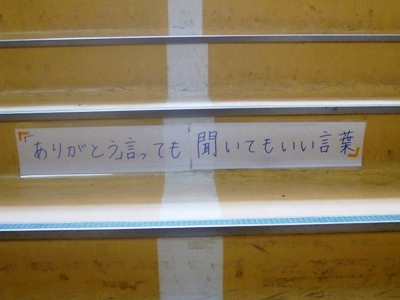 「ありがとう」言っても 聞いてもいい言葉」